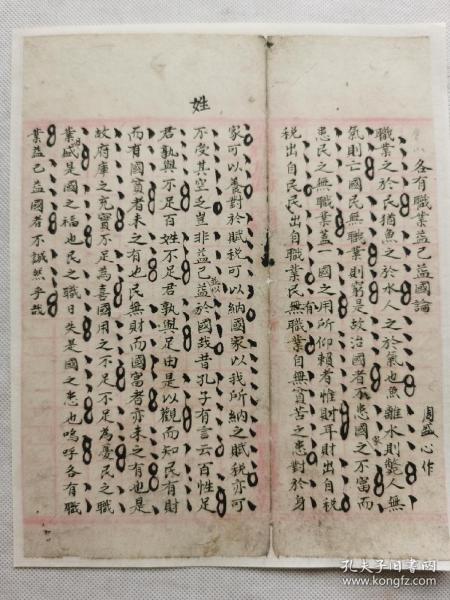 各有職業益己益國論
周盛心作
職業之於民猶魚之於水人之於氣也魚離水則斃人無
氣則亡國民無職業則窮是故治國者不患國之不富而
患民之無職業蓋一國之用所仰賴者惟財耳財出自税
税出自民民出自職業民有職業自無貧苦之患對於身
家可以養對於賦税可以納國家以我所納之賦税亦可
不受其空乏豈非益己益於國哉昔孔子有言云百性足
君孰與不足百姓不足君孰與足由是以觀而知民有財
而有國貧者未之有也民無財而國富者亦未之有也是
故府庫之充實不足為喜國用之不足不足為憂民之職
業盛是國之福也民之職日失是國之患也嗚呼各有職
業益己益國者不誠然乎哉
姓
孔夫子旧书网
www.kongfz.com